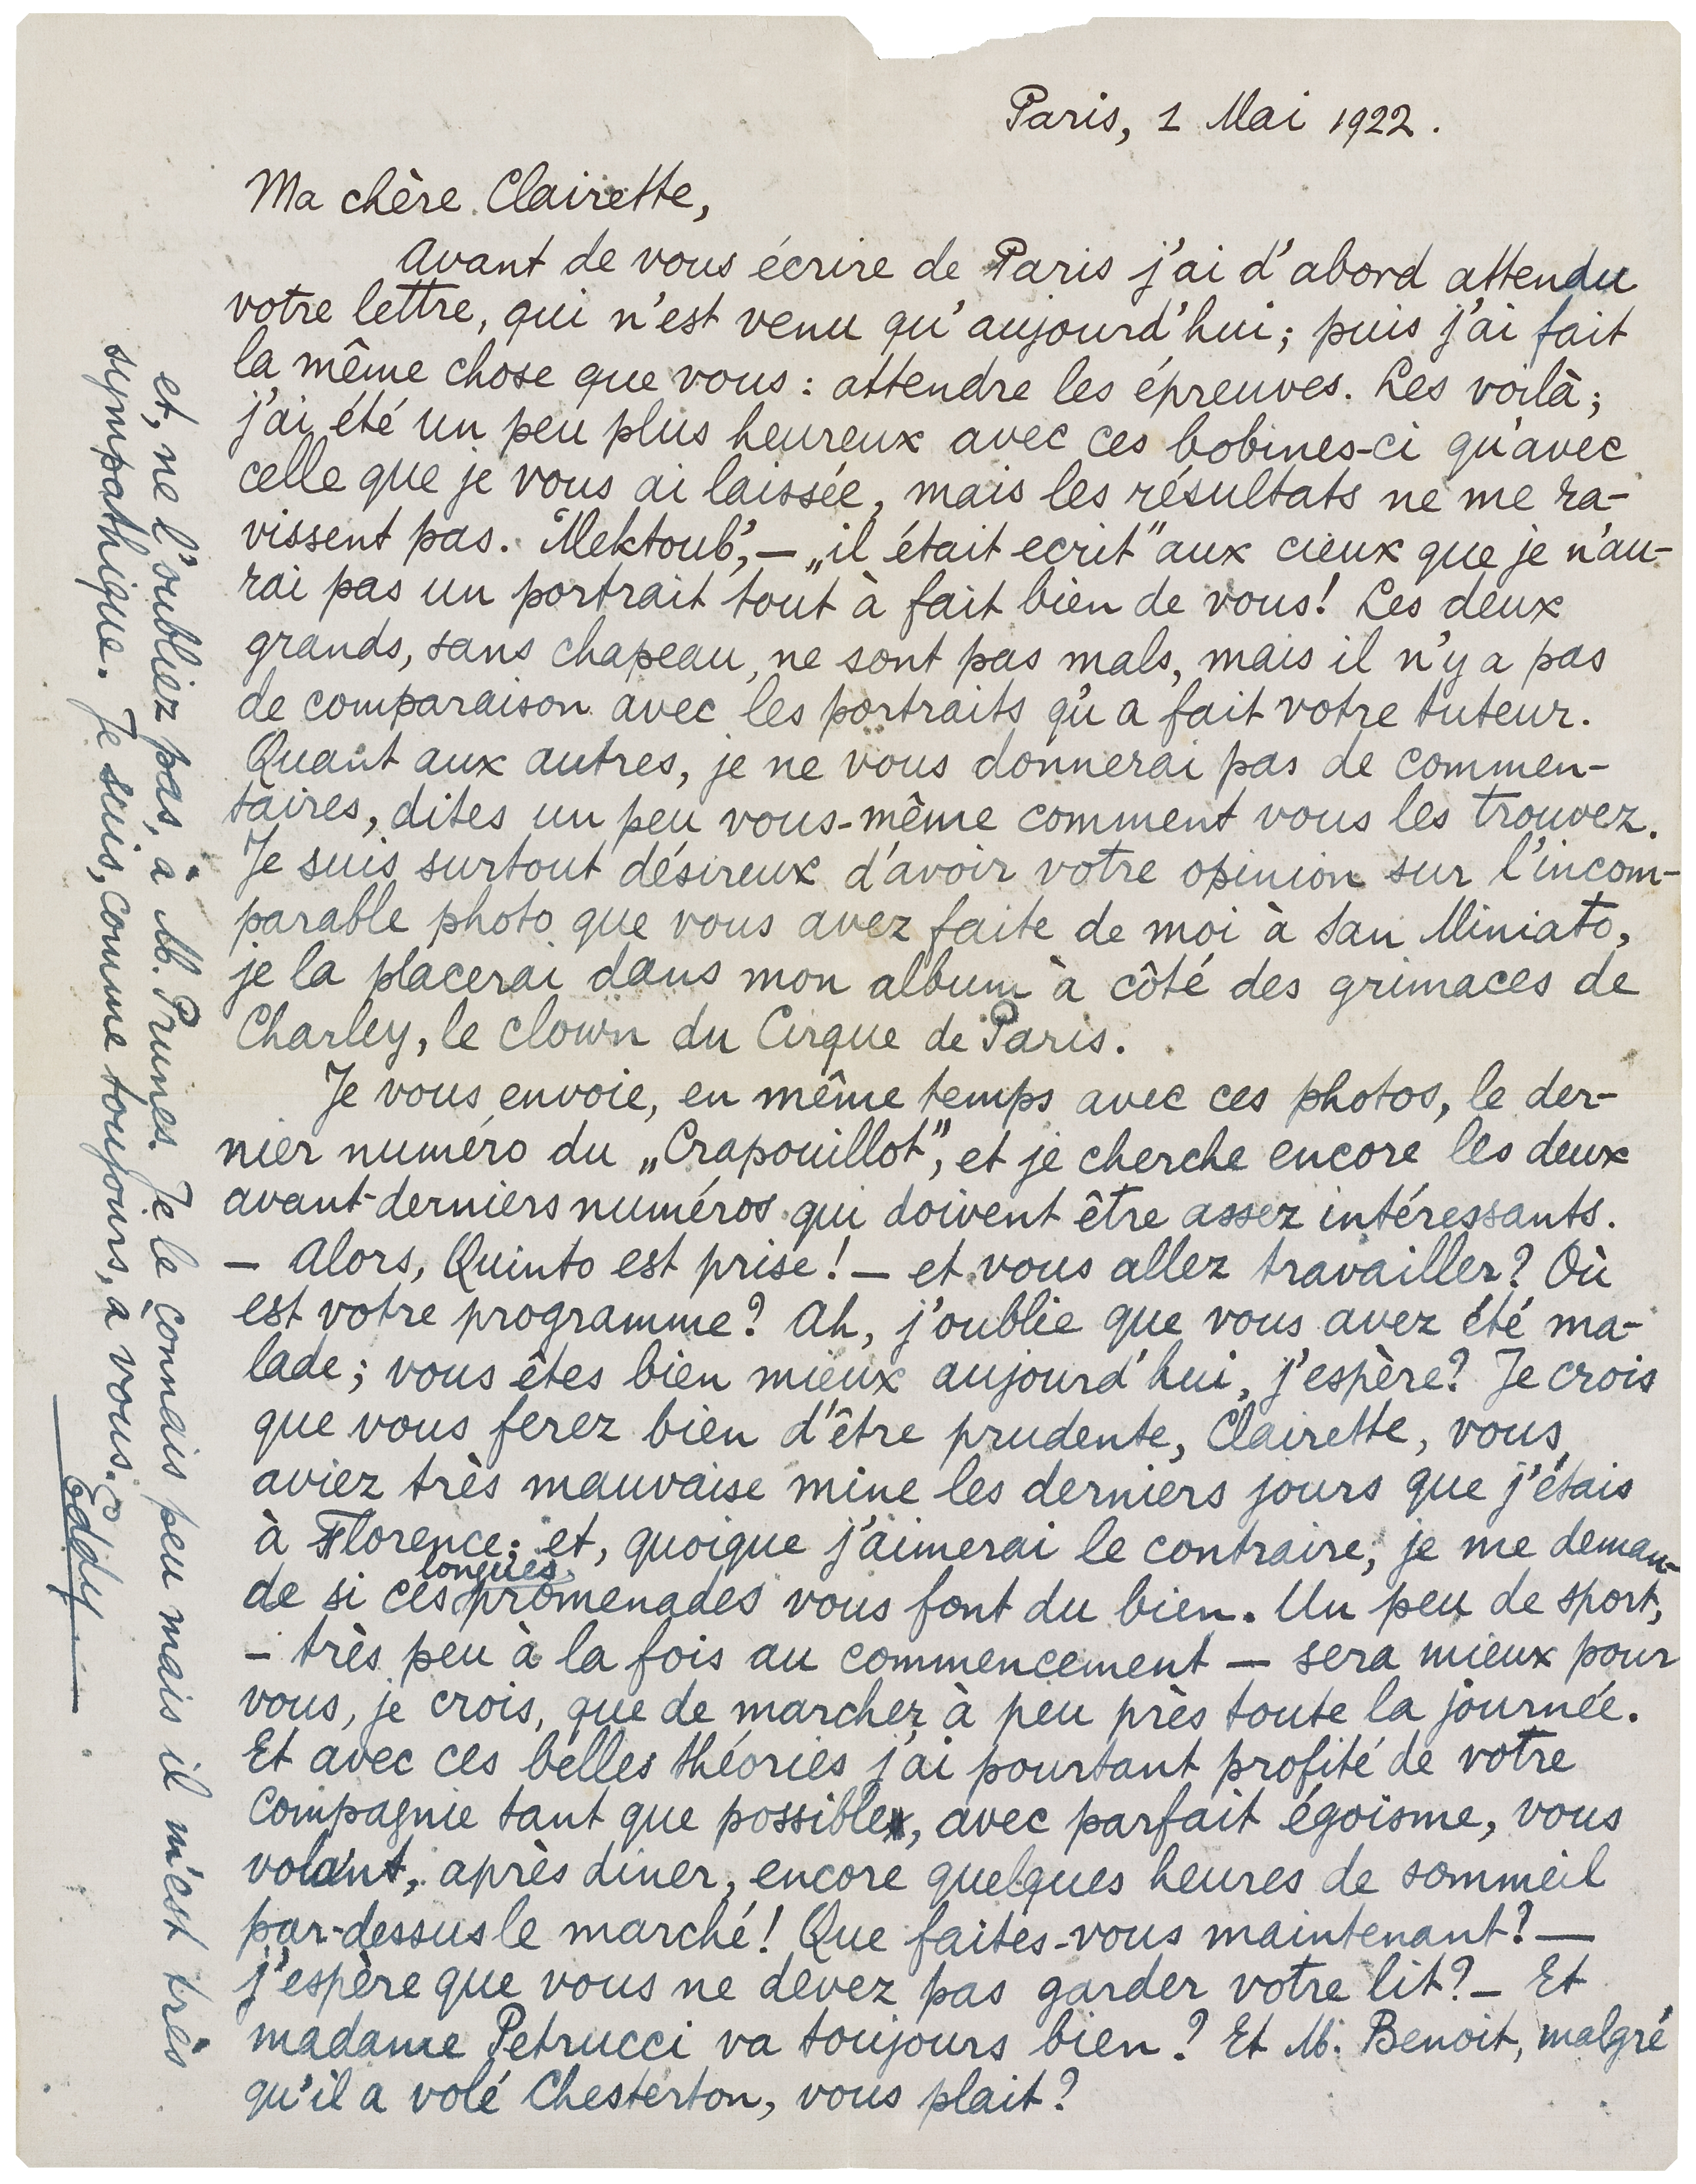 Paris, 1 Mai 1922.
Ma chère Clairette,
Avant de vous écrire de Paris j'ai d'abord attendu
votre lettre, qui n'est venu qu'aujourd'hui; puis j'ai fait
la même chose que vous: attendre les épreuves. Les voilà;
j'ai été un peu plus heureux avec ces bobines-ci qu'avec
celle que je vous ai laissée, mais les résultats ne me ra-
vissent pas. "Mektoub", — „il était ecrit" aux cieux que je n'au-
rai pas un portrait tout à fait bien de vous! Les deux
grands, sans chapeau, ne sont pas mals, mais il n'y a pas
de comparaison avec les portraits qu'a fait votre tuteur.
Quant aux autres, je ne vous donnerai pas de commen-
taires, dites un peu vous-même comment vous les trouvez.
Je suis surtout désireux d'avoir votre opinion sur l'incom-
parable photo que vous avez faite de moi à San Miniato,
je la placerai dans mon album à côté des grimaces de
Charley, le clown du Cirque de Paris.
Je vous envoie, en même temps avec ces photos, le der-
nier numéro du „Crapouillot", et je cherche encore les deux
avant-derniers numéros qui doivent être assez intéressants.
— Alors, Quinto est prise! — et vous allez travailler? Où
est votre programme? Ah, j'oublie que vous avez été ma-
lade; vous êtes bien mieux aujourd'hui, j'espère? Je crois
que vous ferez bien d'être prudente, Clairette, vous
aviez très mauvaise mine les derniers jours que j'étais
à Florence; et, quoique j'aimerai le contraire, je me deman-
de si ces longues promenades vous font du bien. Un peu de sport,
— très peu à la fois au commencement — sera mieux pour
vous, je crois, que de marcher à peu près toute la journée.
Et avec ces belles théories j'ai pourtant profité de votre
compagnie tant que possible, avec parfait égoisme, vous
volant, après diner, encore quelques heures de sommeil
par-dessus le marché! Que faites-vous maintenant? —
j'espère que vous ne devez pas garder votre lit? — Et
madame Petrucci va toujours bien? Et M. Benoit, malgré
qu'il a volé Chesterton, vous plait?
et, ne l'oubliez pas, à M. Prunes. Je le connais peu mais il m'est très
sympathique. Je suis, comme toujours, à vous.
Eddy